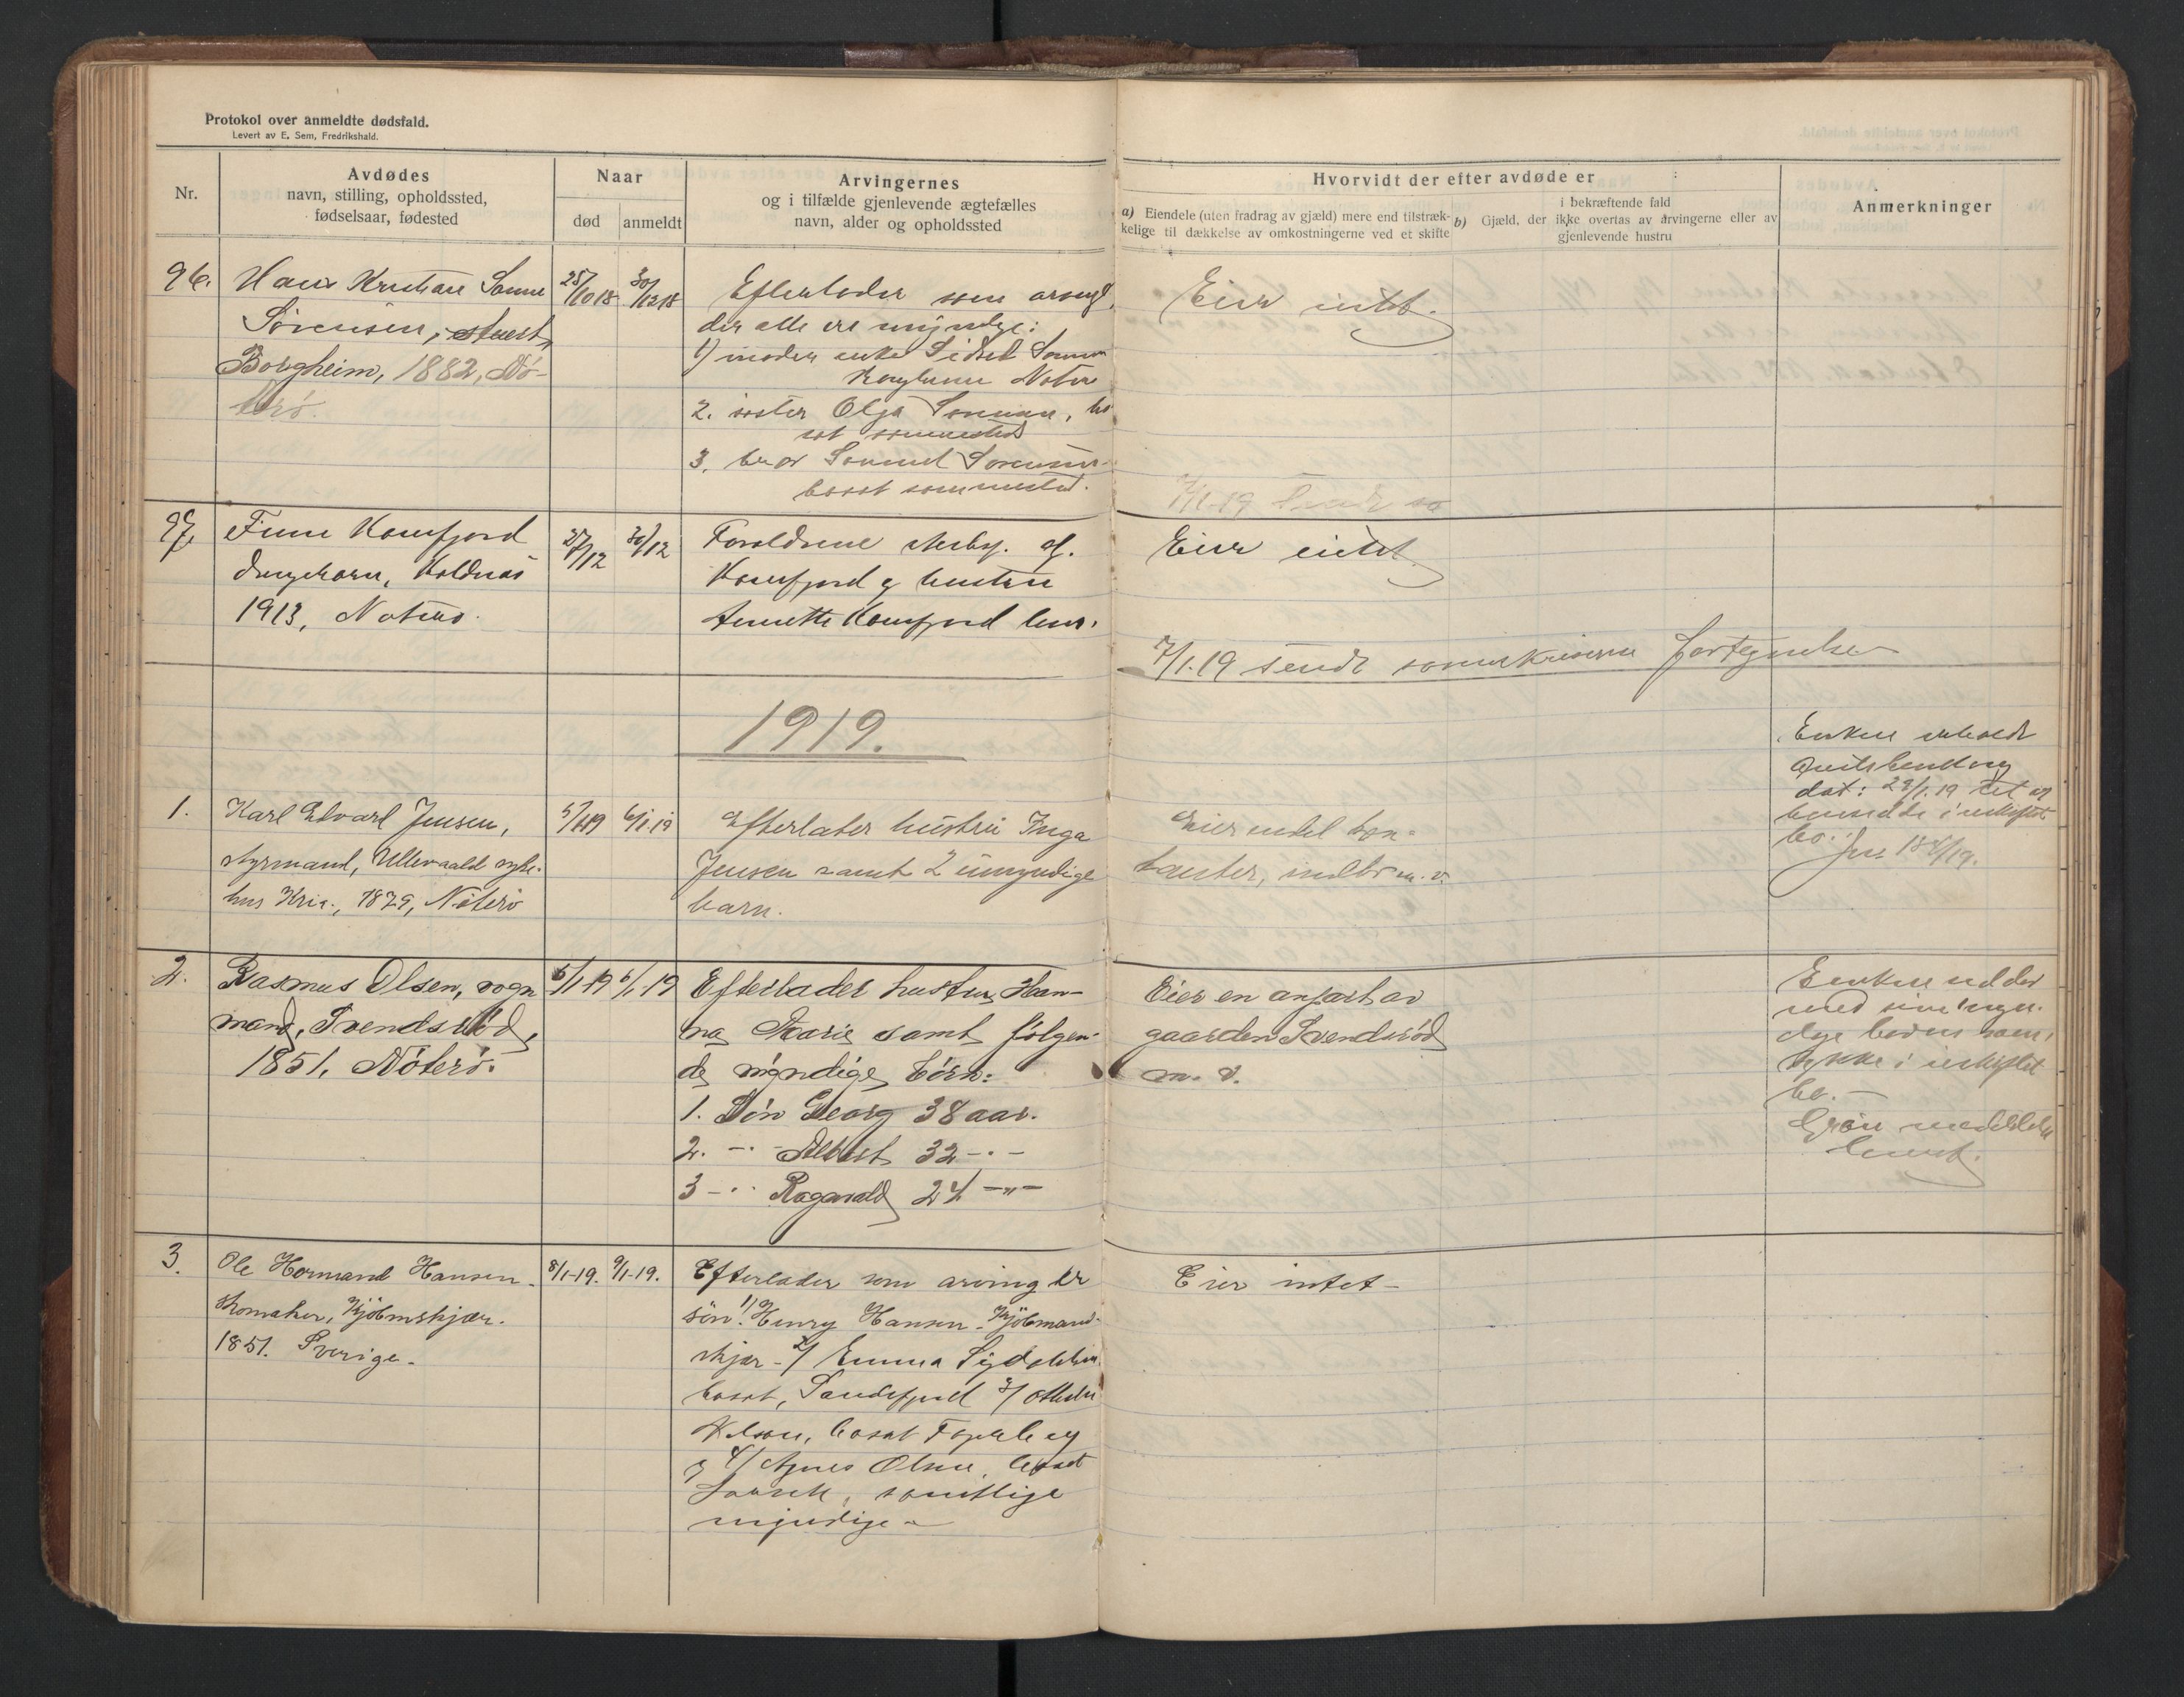 Protokol over anmeldte dødsfald.
Levert av E. Sem, Fredrikshald.
Nr.
Avdødes
navn, stilling, opholdssted,
fødselsaar, fødested
Naar
død
anmeldt
Arvingernes
og i tilfælde gjenlevende ægtefælles
navn, alder og opholdssted
Hvorvidt der efter avdøde er
a) Eiendele (uten fradrag av gjæld) mere end tilstræk-
kelige til dækkelse av omkostningerne ved et skifte
i bekræftende fald
b) Gjæld, der ikke overtas av arvingerne eller av
gjenlevende hustru
Anmerkninger
96.
Hans Kristian
Sørensen, stuert,
Borgheim, 1882, Nö-
terö.
25/10 18
30/12 18
Efterlader som arvinger
der alle ere myndige:
1) moder enke Sidsel
Borgheim Nøterø
2. søster Olga Sørensen, bo-
sat sammesteds
3. bror Samuel Sørensen
bosat sammested.
Eier intet.
7/1-19 Sendt
97.
Finn Kamfjord
drengebarn, Kaldnæs
1913, Nøterø.
27/12
30/12
Forældrene
Kamfjord og hustru
Annette Kamfjord
Eier intet.
7/1.19 sendt fortegnelse
1919.
1.
Karl Edvart Jensen,
styrmand, Ullevaald syke-
hus Kria., 1879, Nöterö
5/1 19
6/1.19
Efterlater hustru Inga
Jensen samt 2 umyndige
barn.
Eier endel ban-
kauster, indbo m.v.
Enken
dat: 29/1.19
bo.
2.
Rasmus Olsen, vogn
mand, Svendsrød,
1851, Nöterö.
5/1-19
6/1-19
Efterlader hustru Han-
na Marie samt følgen-
de myndige börn:
1. Sön Georg 38 aar.
2. -·- Albert 32 -·-
3 -·- Ragnvald 24 -"-
Eier en anpart av
gaarden Svendsrød
m. v.
Enken
med sine myn-
dige
i uskiftet
bo.-
3.
Ole Hermand Hansen.
skomaker, Kjöbmskjær.
1851. Sverige.
8/1-19.
9/1-19.
Efterlader som arvinger
sön: 1/ Henry Hansen. Kjöbmand-
skjær - 2/ Emma
bosat, Sandefjord 3/
bosat
og 4/ Agnes Olsen, bosat
samtlige
myndige -
Eier intet -